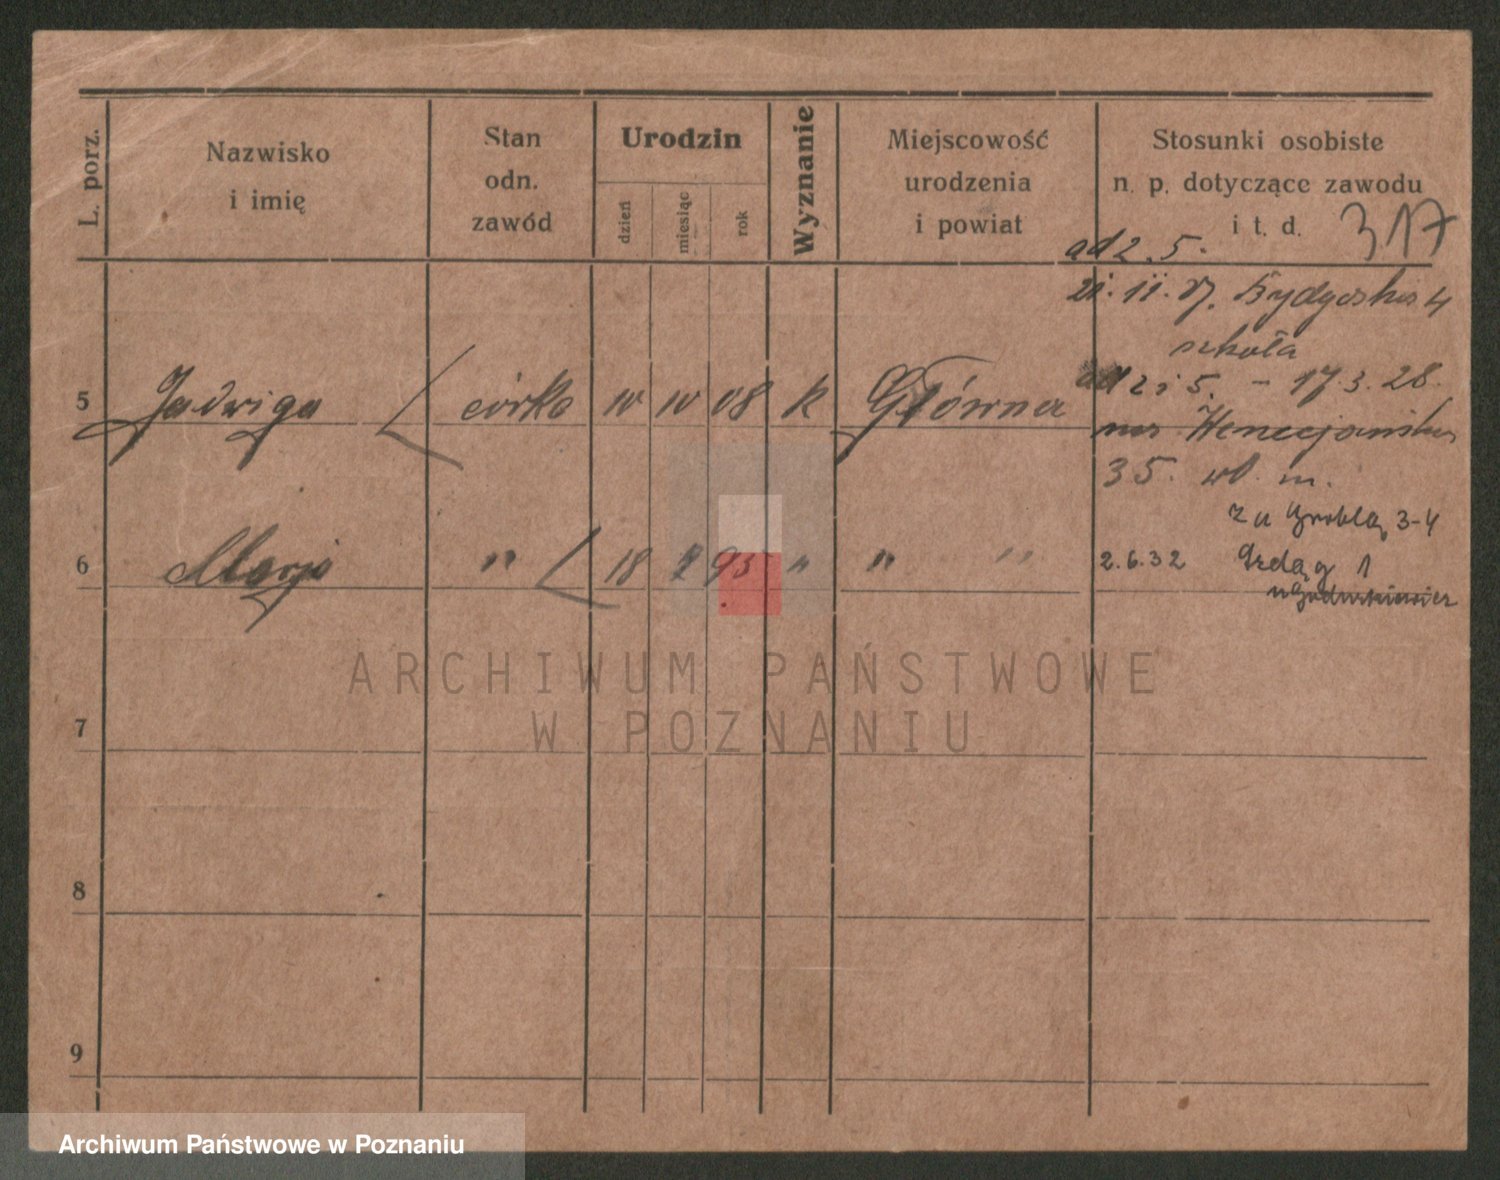 L. porz.
Nazwisko
i imię
Stan
odn.
zawód
Urodzin
dzień
miesiąc
rok
Wyznanie
Miejscowość
urodzenia
i powiat
Stosunki osobiste
n. p. dotyczące zawodu
i t. d. 317
ad 2. 5.
21. 11. 27. Bydgoska 4
szkoła
5 Jadwiga córka 10 10 08 k Główna
ad 2 i 5. - 17. 3. 28.
Wenecjańska
35. wł. m.
z u Grobla 3-4
6 Marja " 18 2 93 " " "
2.6.32 1
7
8
9
ARCHIWUM PAŃSTWOWE
W POZNANIU
Archiwum Państwowe w Poznaniu